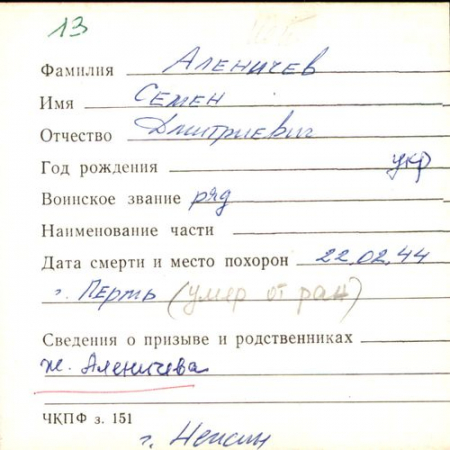 13
Фамилия Аленичев
Имя Семен
Отчество Дмитриевич
Год рождения укр
Воинское звание ряд
Наименование части
Дата смерти и место похорон 22.02.44
г. Пермь (умер от ран)
Сведения о призыве и родственниках
ж. Аленичева
ЧКПФ з. 151
г. Нежин